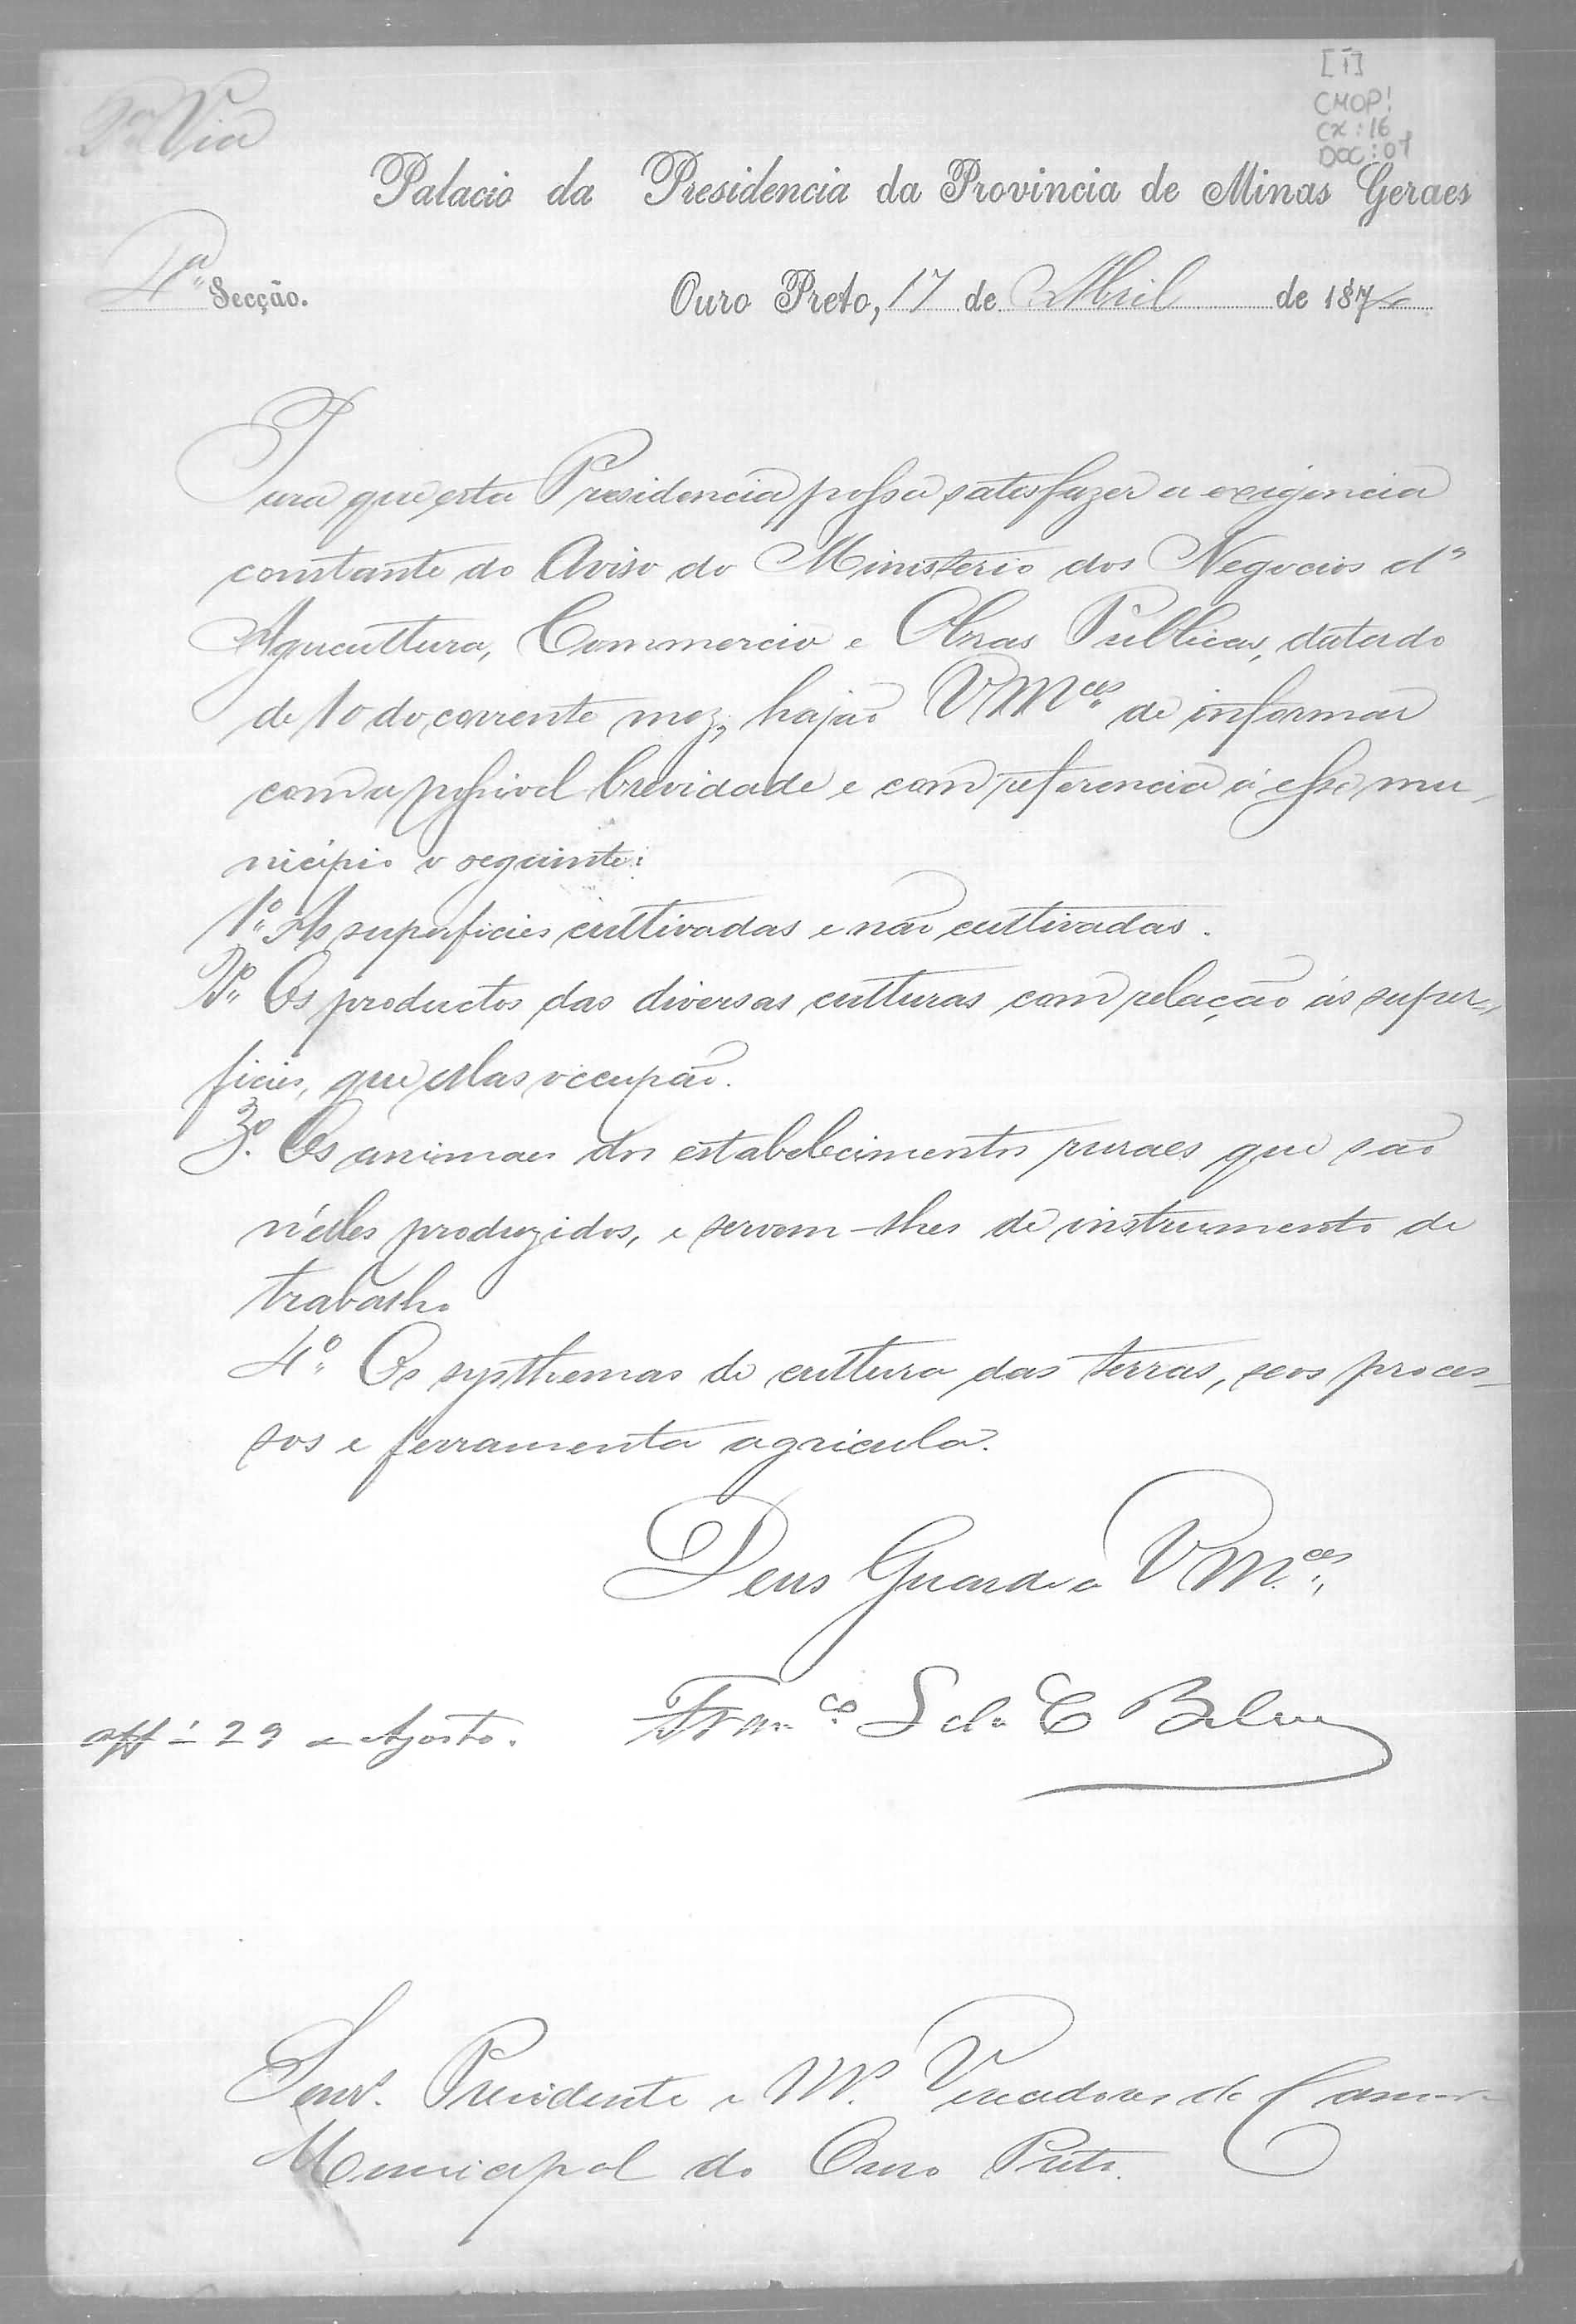 [1]
CMOP!
CX: 16
DOC: 01
2ª Via
Palacio da Presidencia da Provincia de Minas Geraes
4ª Secção.
Ouro Preto, 17 de Abril de 1874
Para que esta Presidencia possa satisfazer a exigencia
constante do Aviso do Ministerio dos Negocios d'
Agricultura, Commercio e Obras Publicas, datado
de 10 do corrente mez, hajão VMces de informar
com a possivel brevidade e com referencia á esse mu-
nicipio o seguinte:
1º As superficies cultivadas e não cultivadas.
2º Os productos das diversas culturas com relação ás super-
ficies, que ellas occupão.
3º Os animaes dos estabelecimentos ruraes que são
n'elles produzidos, e servem-lhes de instrumento de
trabalho
4º Os systhemas de cultura das terras, seos proces-
sos e ferramenta agricula.
Deus Guarde a VMces
Franco
29 de Agosto.
Senrs. Presidente e Ms. Vereadores da Camara
Municipal do Ouro Preto.